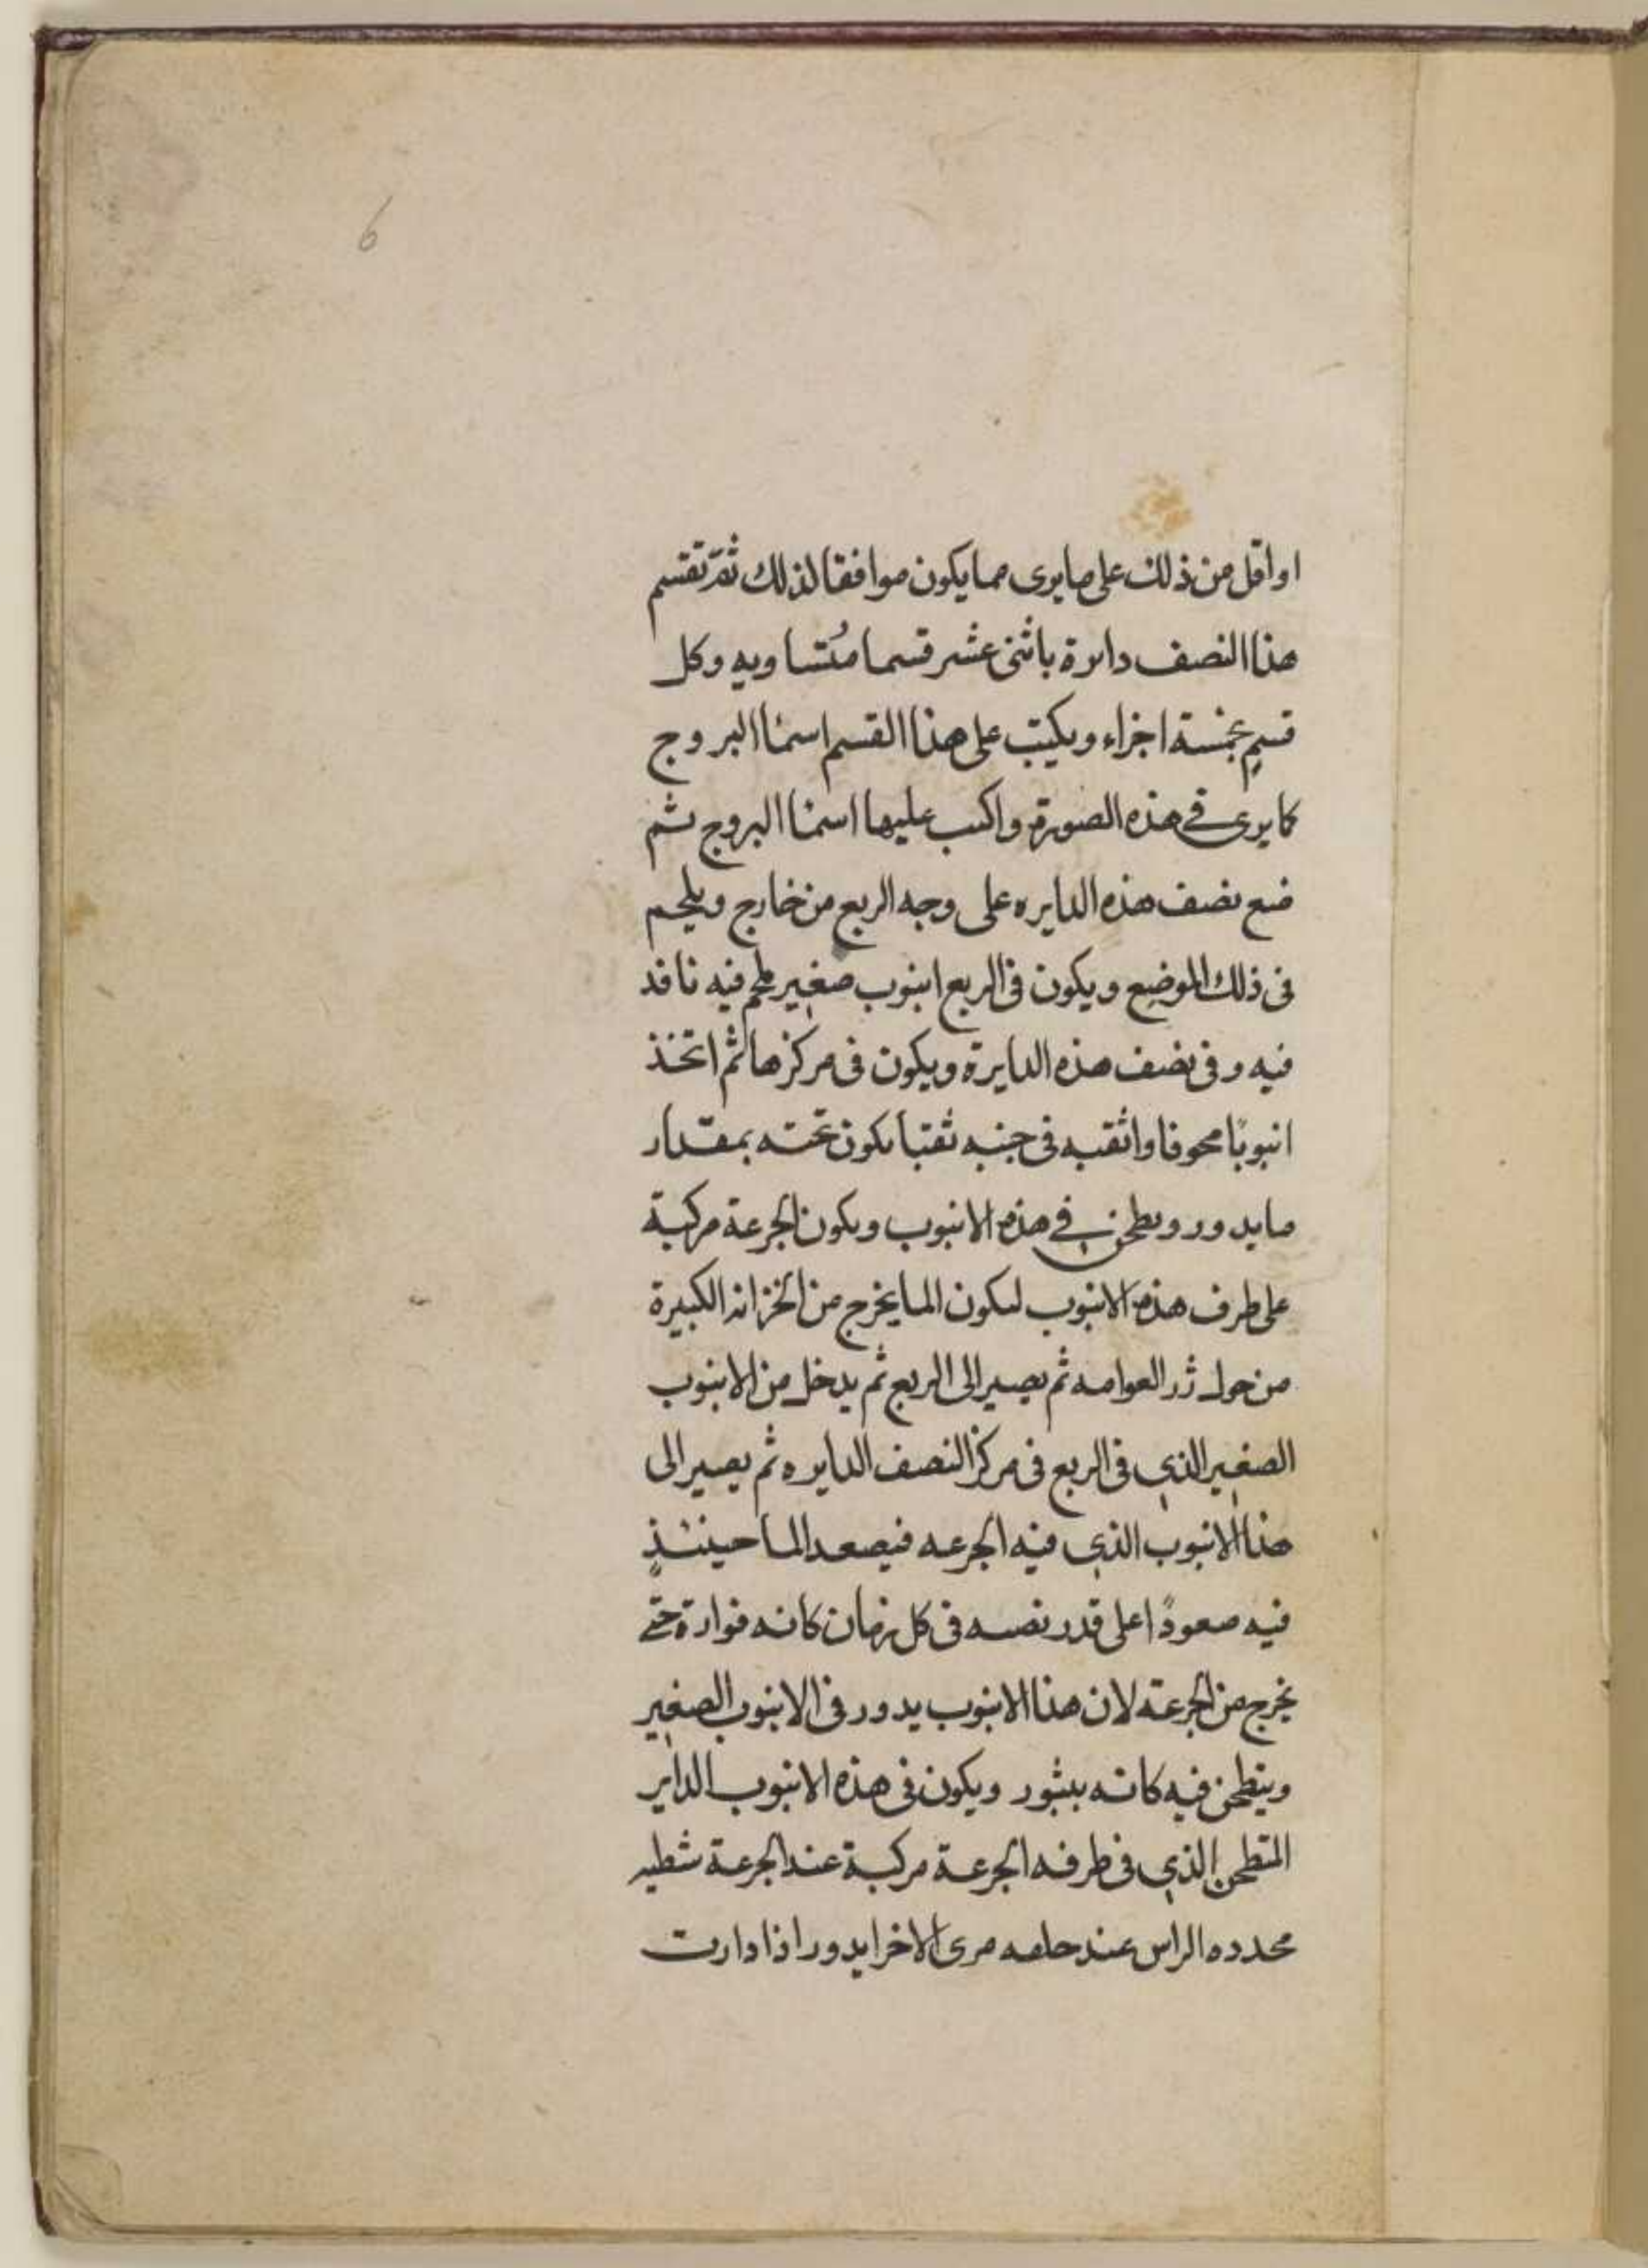 6
او اقل من ذلك على ما يرى مما يكون موافقا لذلك ثم تقسم
هذا النصف دايرة باثنى عشر قسما متساويه وكل
قسم بخمسة اجزاء ويكتب على هذا القسم اسما البروج
كما يرى في هذه الصورة واكتب عليها اسما البروج ثم
ضع نصف هذه الدايره على وجه الربع من خارج ويلحم
فى ذلك الموضع ويكون فى الربع انبوب صغير ملحم فيه نافد
فيه وفى نصف هذه الدايرة ويكون فى مركزها ثم اتخذ
انبوبًا مجوفا واثقبه فى جنبه ثقبا يكون تحته بمقدار
ما يدور ويطحن في هذه الانبوب ويكون الجرعة مركبة
على طرف هذه الانبوب ليكون الما يخرج من الخزانه الكبيرة
من حول زر العوامه ثم يصير الى الربع ثم يدخل من الانبوب
الصغير الذي فى الربع فى مركز النصف الدايره ثم يصير الى
هذا الانبوب الذي فيه الجرعه فيصعد الما حينئذٍ
فيه صعودًا على قدر نصبه فى كل زمان كانه فوارة حتى
يخرج من الجرعة لان هذا الانبوب يدور فى الانبوب الصغير
وينطحن فيه كانه ببثور ويكون فى هذه الانبوب الداير
المنطحن الذي فى طرفه الجرعة مركبة عند الجرعة شظيه
محدده الراس عند حلقه مرى الاخرا يدور اذا دارت